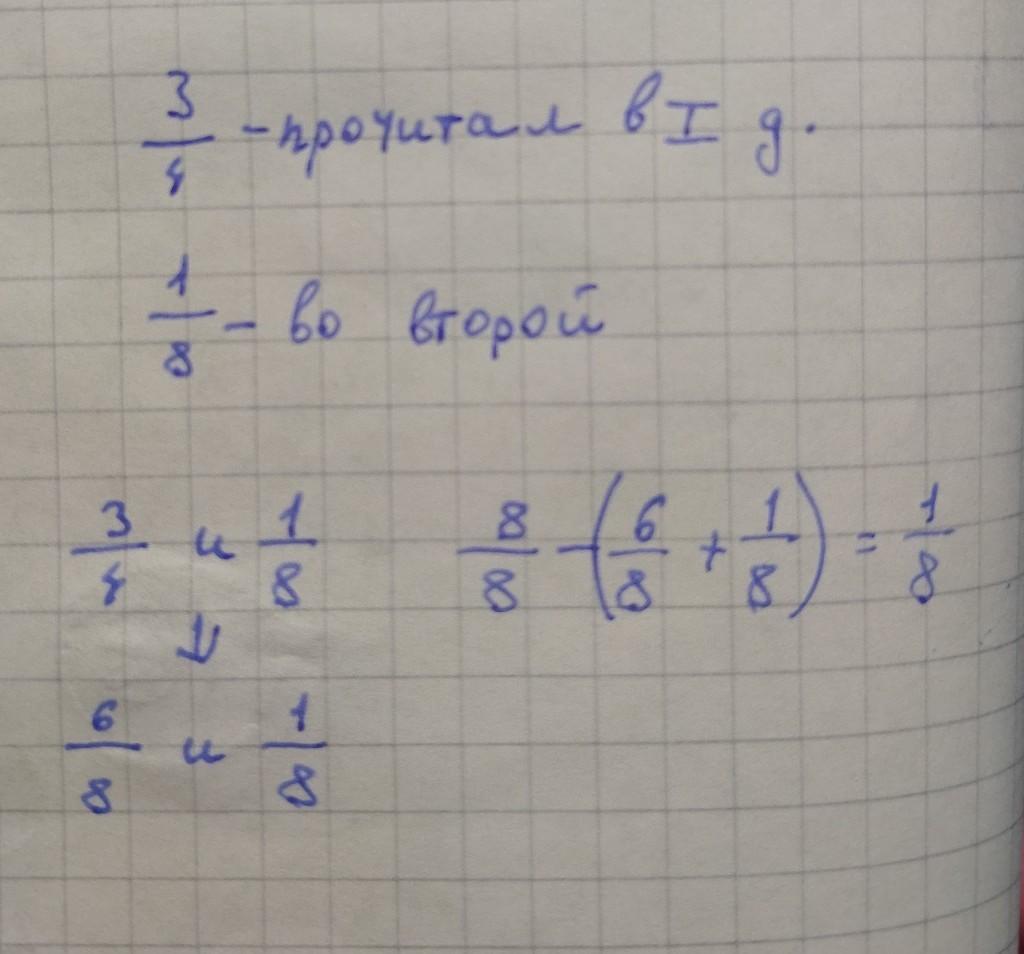 3/4 - прочитал в I д.
1/8 - во второй
3/4 и 1/8    8/8 - (6/8 + 1/8) = 1/8
↓
6/8 и 1/8